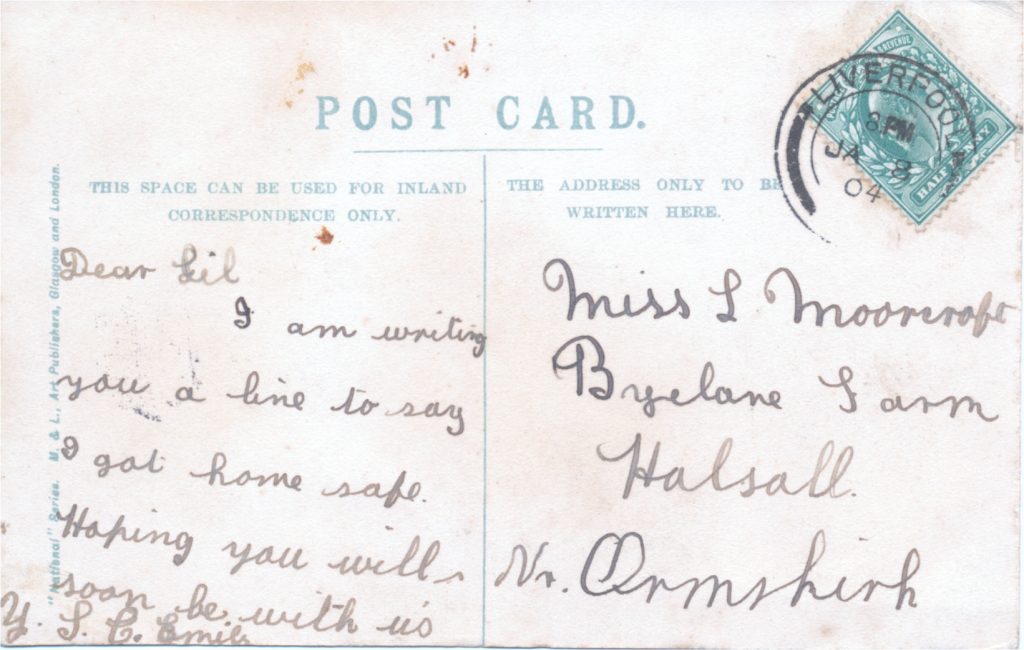 POST CARD.
THIS SPACE CAN BE USED FOR INLAND
CORRESPONDENCE ONLY.
THE ADDRESS ONLY TO BE
WRITTEN HERE.
"National" Series. M. & L., Art Publishers, Glasgow and London.
Dear Lil
I am writing
you a line to say
I got home safe.
Hoping you will
soon be with us
Y. L. C. Emily
LIVERPOOL
8 PM
JA 8
04
REVENUE
HALF
Miss L Moorcroft
Byelane Farm
Halsall.
Nr. Ormskirk